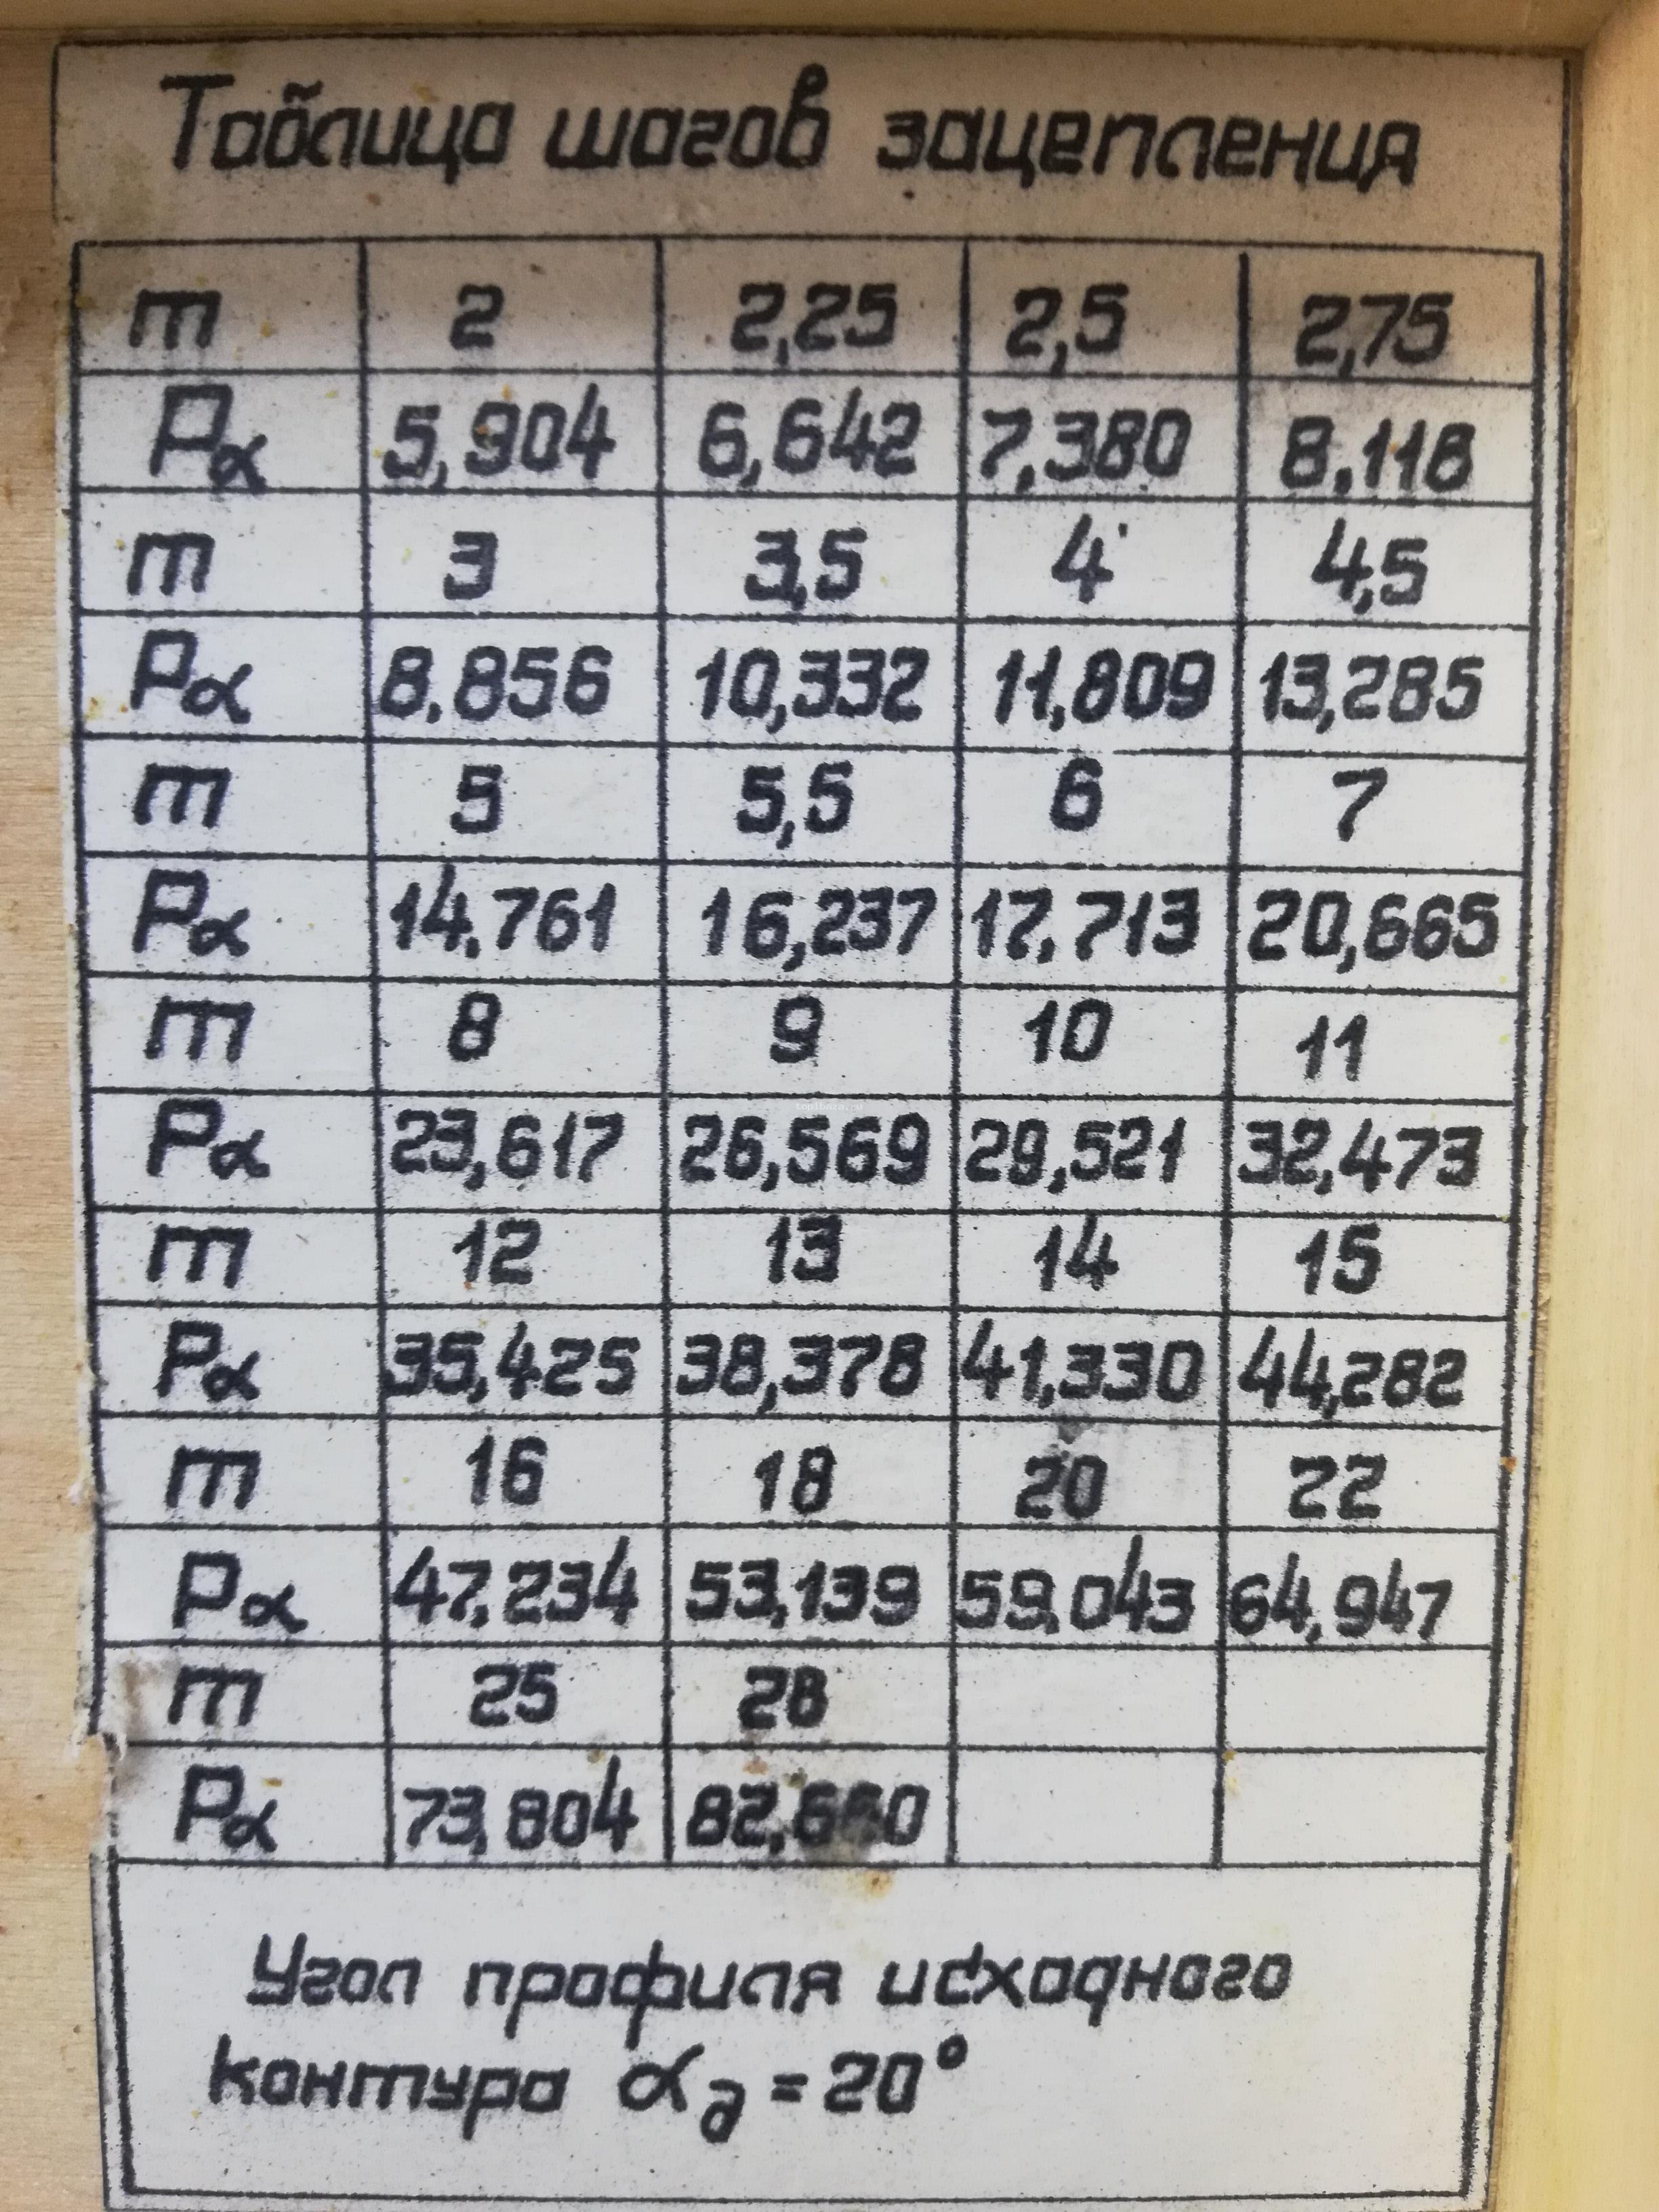 Таблица шагов зацепления
m 2 2,25 2,5 2,75
Pα 5,904 6,642 7,380 8,118
m 3 3,5 4 4,5
Pα 8,856 10,332 11,809 13,285
m 5 5,5 6 7
Pα 14,761 16,237 17,713 20,665
m 8 9 10 11
Pα 23,617 26,569 29,521 32,473
m 12 13 14 15
Pα 35,425 38,378 41,330 44,282
m 16 18 20 22
Pα 47,234 53,139 59,043 64,947
m 25 28
Pα 73,804 82,660
Угол профиля исходного
контура α∂ = 20°